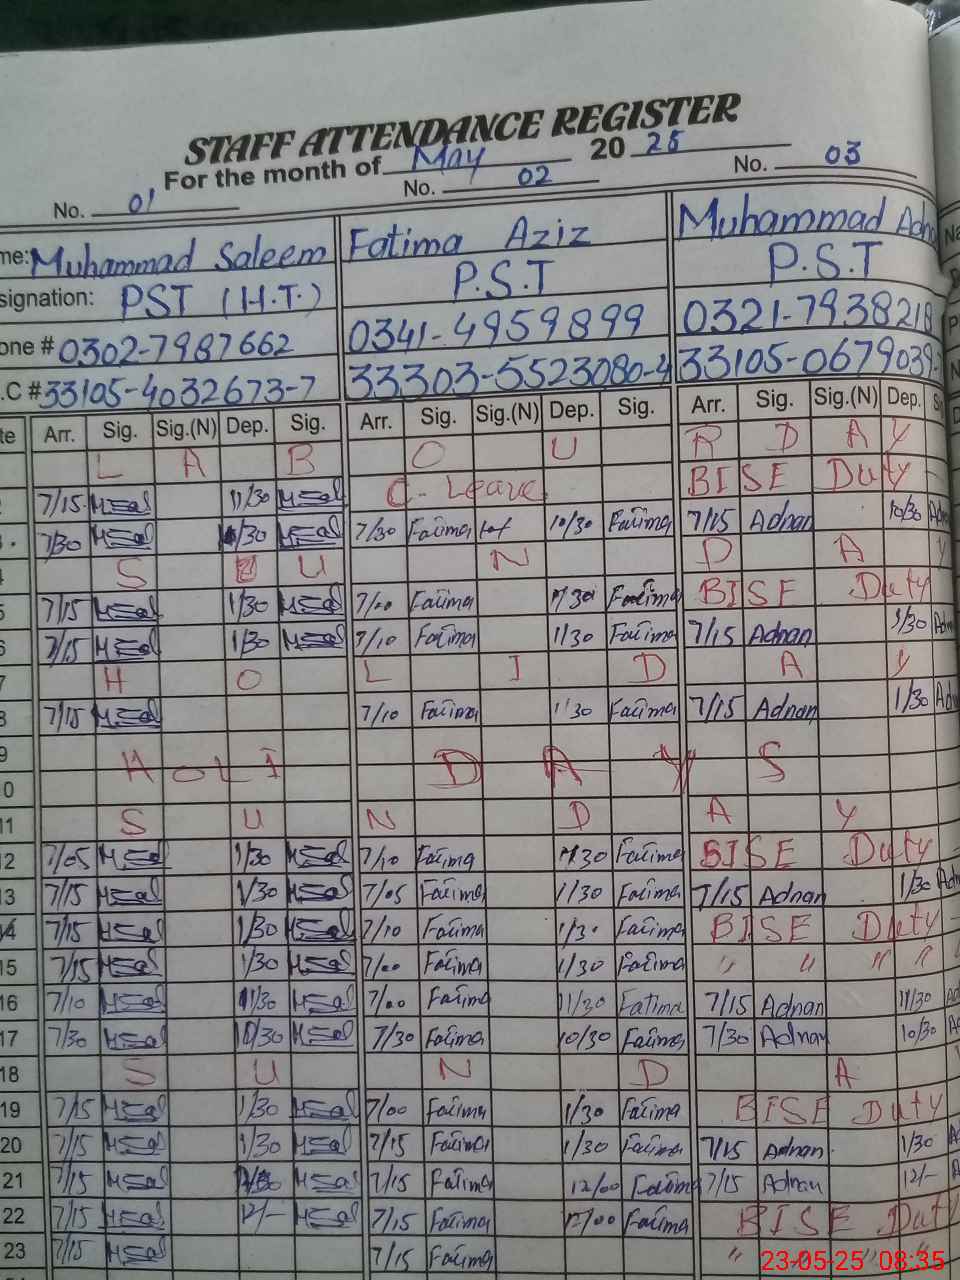 STAFF ATTENDANCE REGISTER
For the month of May 2025
No. 01 No. 02 No. 03
me: Muhammad Saleem Fatima Aziz Muhammad Adna
signation: PST (H.T.) P.S.T P.S.T
one # 0302-7987662 0341-4959899 0321-7938218
.C # 33105-4032673-7 33303-5523080-4 33105-0679039-
te Arr. Sig. Sig.(N) Dep. Sig. Arr. Sig. Sig.(N) Dep. Sig. Arr. Sig. Sig.(N) Dep.
L A B O U R D A Y
7/15 11/30 C-Leave BISE Duty
7/30 10/30 7/30 Fatima 10/30 Fatima 7/15 Adnan 10/30
S U N D A Y
5 7/15 1/30 7/00 Fatima 1/30 Fatima BISE Duty
6 7/15 1/30 7/10 Fatima 1/30 Fatima 7/15 Adnan 1/30
7 H O L I D A Y
8 7/15 7/10 Fatima 1/30 Fatima 7/15 Adnan 1/30
9
0 HOLI DAYS
11 S U N D A Y
12 7/05 1/30 7/10 Fatima 1/30 Fatima BISE Duty
13 7/15 1/30 7/05 Fatima 1/30 Fatima 7/15 Adnan 1/30
14 7/15 1/30 7/10 Fatima 1/30 Fatima BISE Duty
15 7/15 1/30 7/00 Fatima 1/30 Fatima " " " "
16 7/10 11/30 7/00 Fatima 11/30 Fatima 7/15 Adnan 11/30
17 7/30 10/30 7/30 Fatima 10/30 Fatima 7/30 Adnan 10/30
18 S U N D A
19 7/15 1/30 7/00 Fatima 1/30 Fatima BISE Duty
20 7/15 1/30 7/15 Fatima 1/30 Fatima 7/15 Adnan 1/30
21 7/15 7/15 Fatima 12/00 Fatima 7/15 Adnan 12/-
22 7/15 12/- 7/15 Fatima 12/00 Fatima BISE Duty
23 7/15 7/15 Fatima " " "
23-05-25 08:35